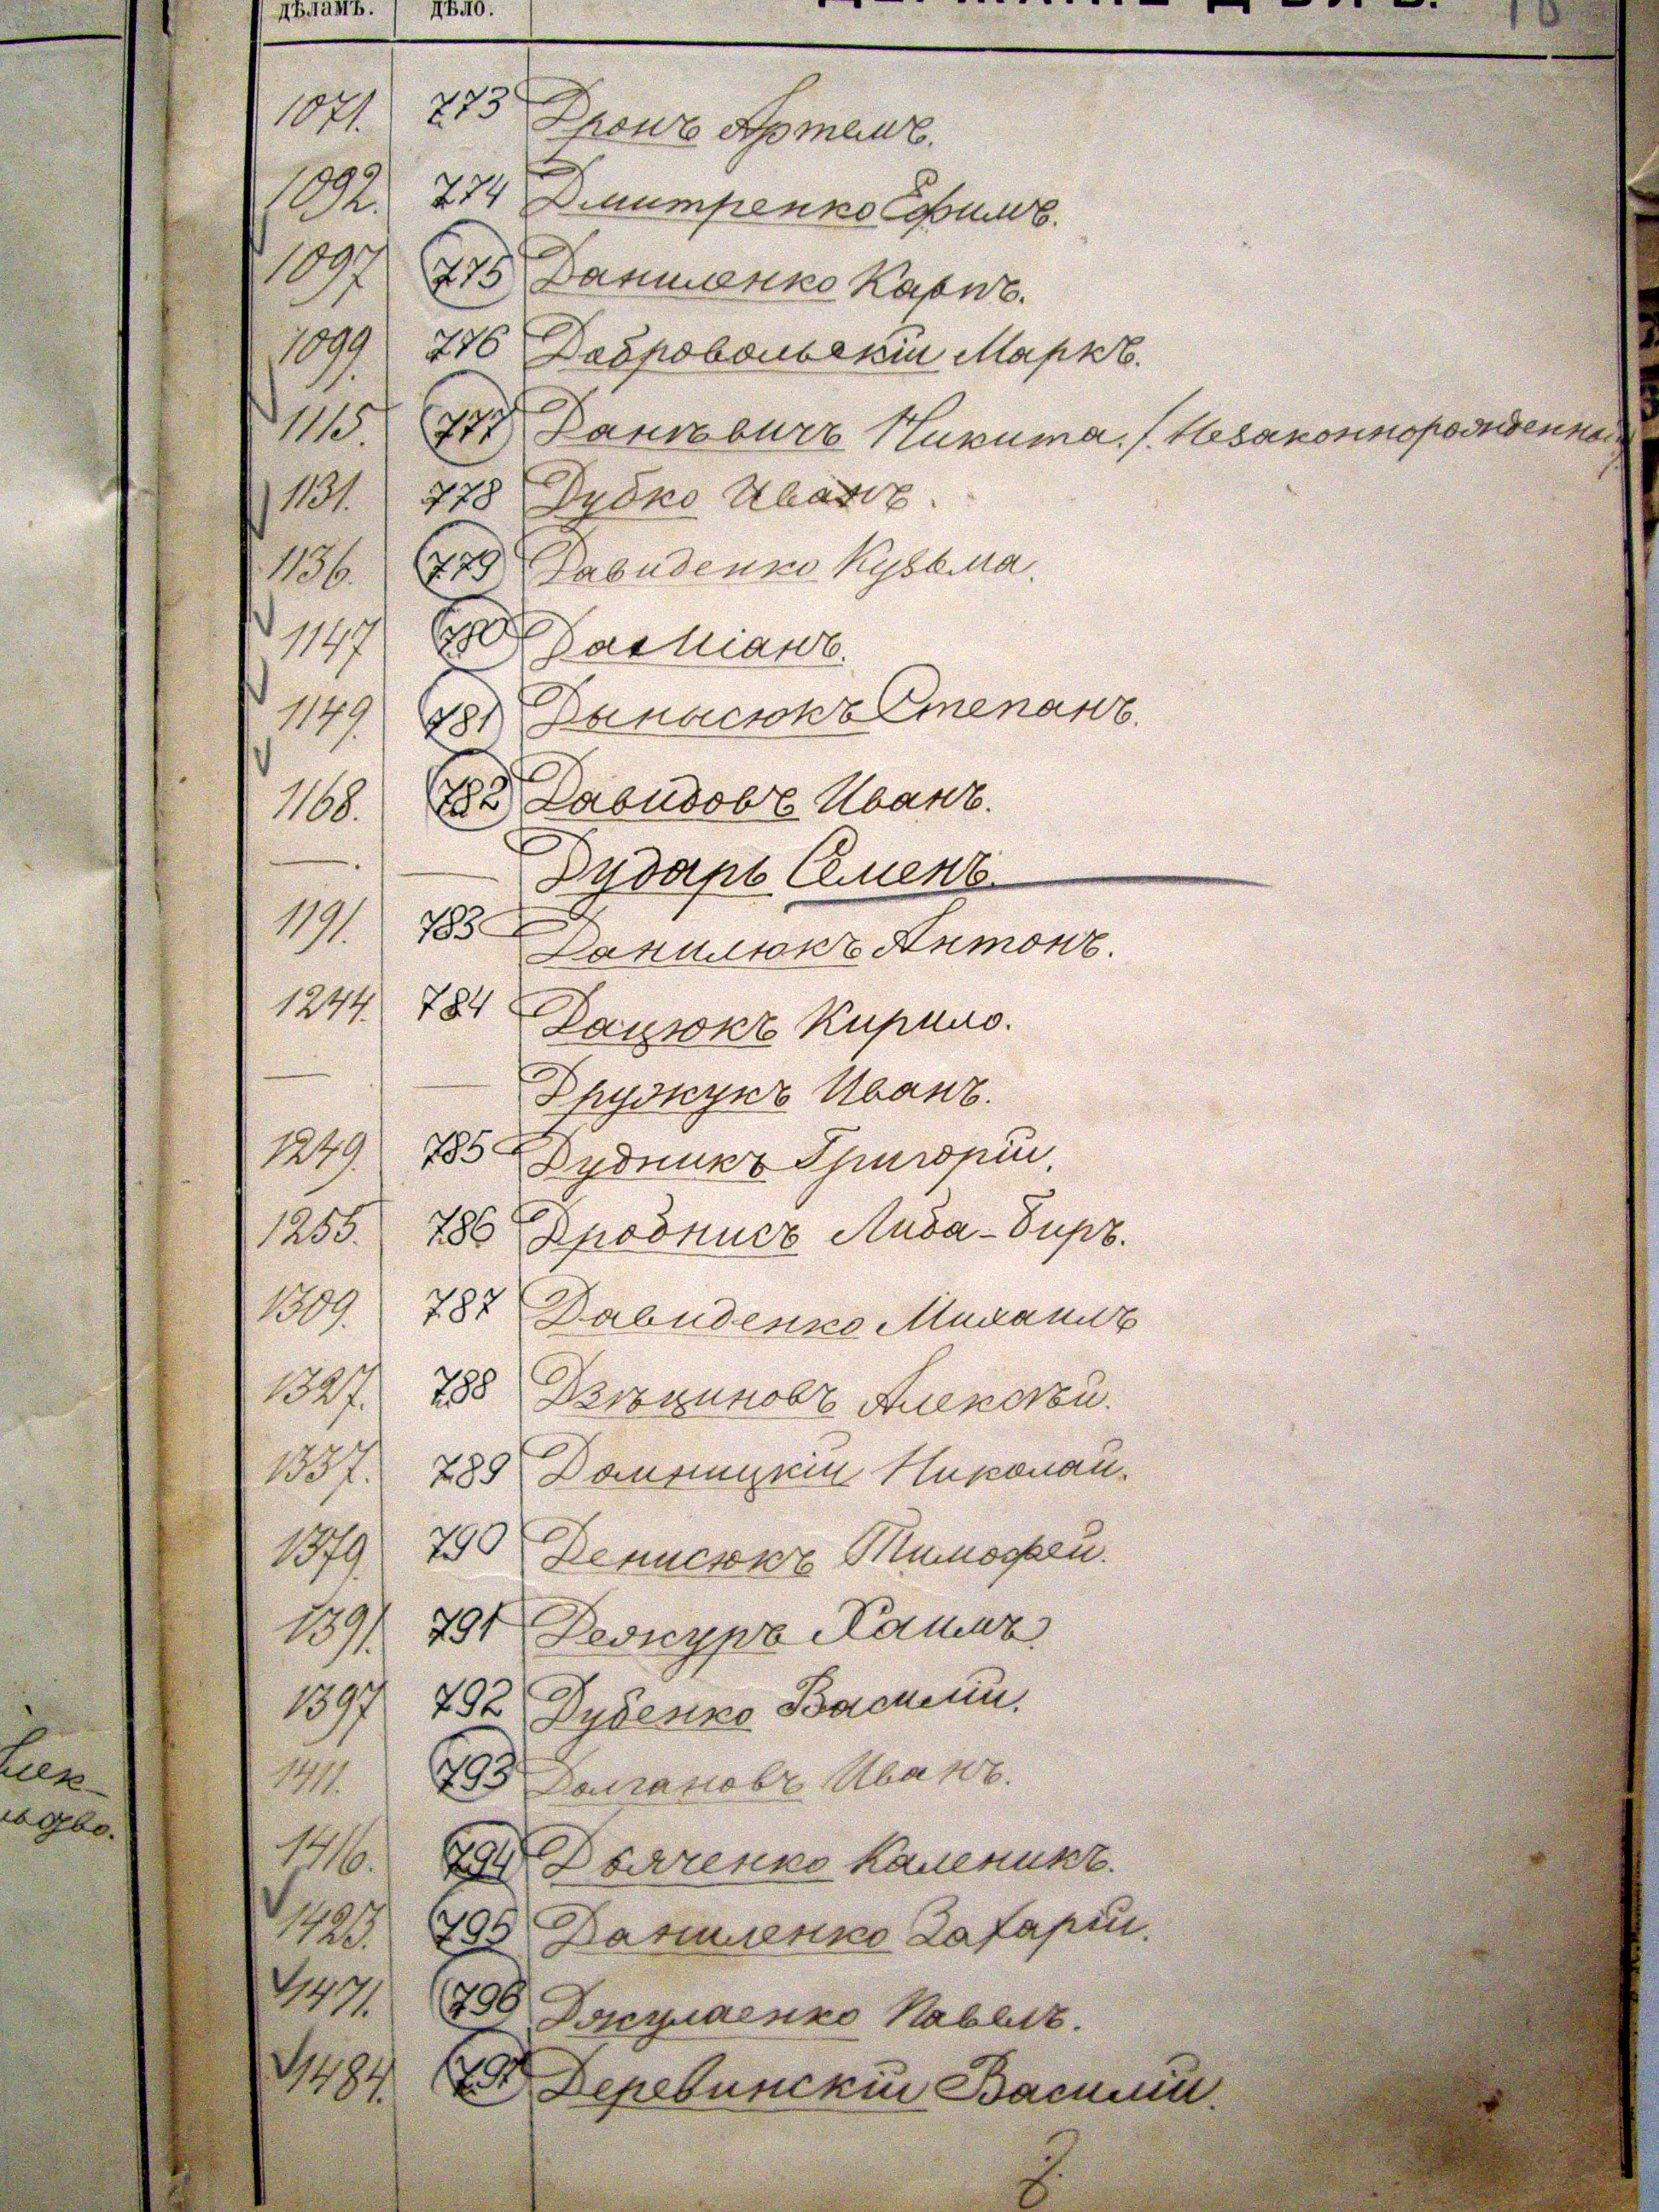 дѣламъ. дѣло. ДЕРЖАНІЕ ДѢЛЪ. 18
1071. 773 Дронъ Артемъ.
1092. 774 Дмитренко Ефимъ.
1097 775 Даниленко Карпъ.
1099. 776 Добровольскій Маркъ.
1115. 777 Даньевичъ Никита. /Незаконнорожденный/
1131. 778 Дубко Иванъ.
1136. 779 Давиденко Кузьма.
1147 780 Даміанъ.
1149. 781 Дынысюкъ Степанъ.
1168. 782 Давидовъ Иванъ.
— . — Дударь Семенъ.
1191. 783 Данилюкъ Антонъ.
1244. 784 Дацюкъ Кирило.
— — Дружукъ Иванъ.
1249. 785 Дудникъ Григорій.
1255. 786 Дробнисъ Либа-Биръ.
1309. 787 Давиденко Михаилъ
1327. 788 Дзѣциновъ Алексѣй.
1337. 789 Домницкій Николай.
1379. 790 Денисюкъ Тимофей.
1391. 791 Дежуръ Хаимъ.
1397 792 Дубенко Василій.
1411. 793 Долгановъ Иванъ.
1416. 794 Дьяченко Каленикъ.
1423. 795 Даниленко Захарій.
1471. 796 Джулаенко Павелъ.
1484. 797 Деревинскій Василій.